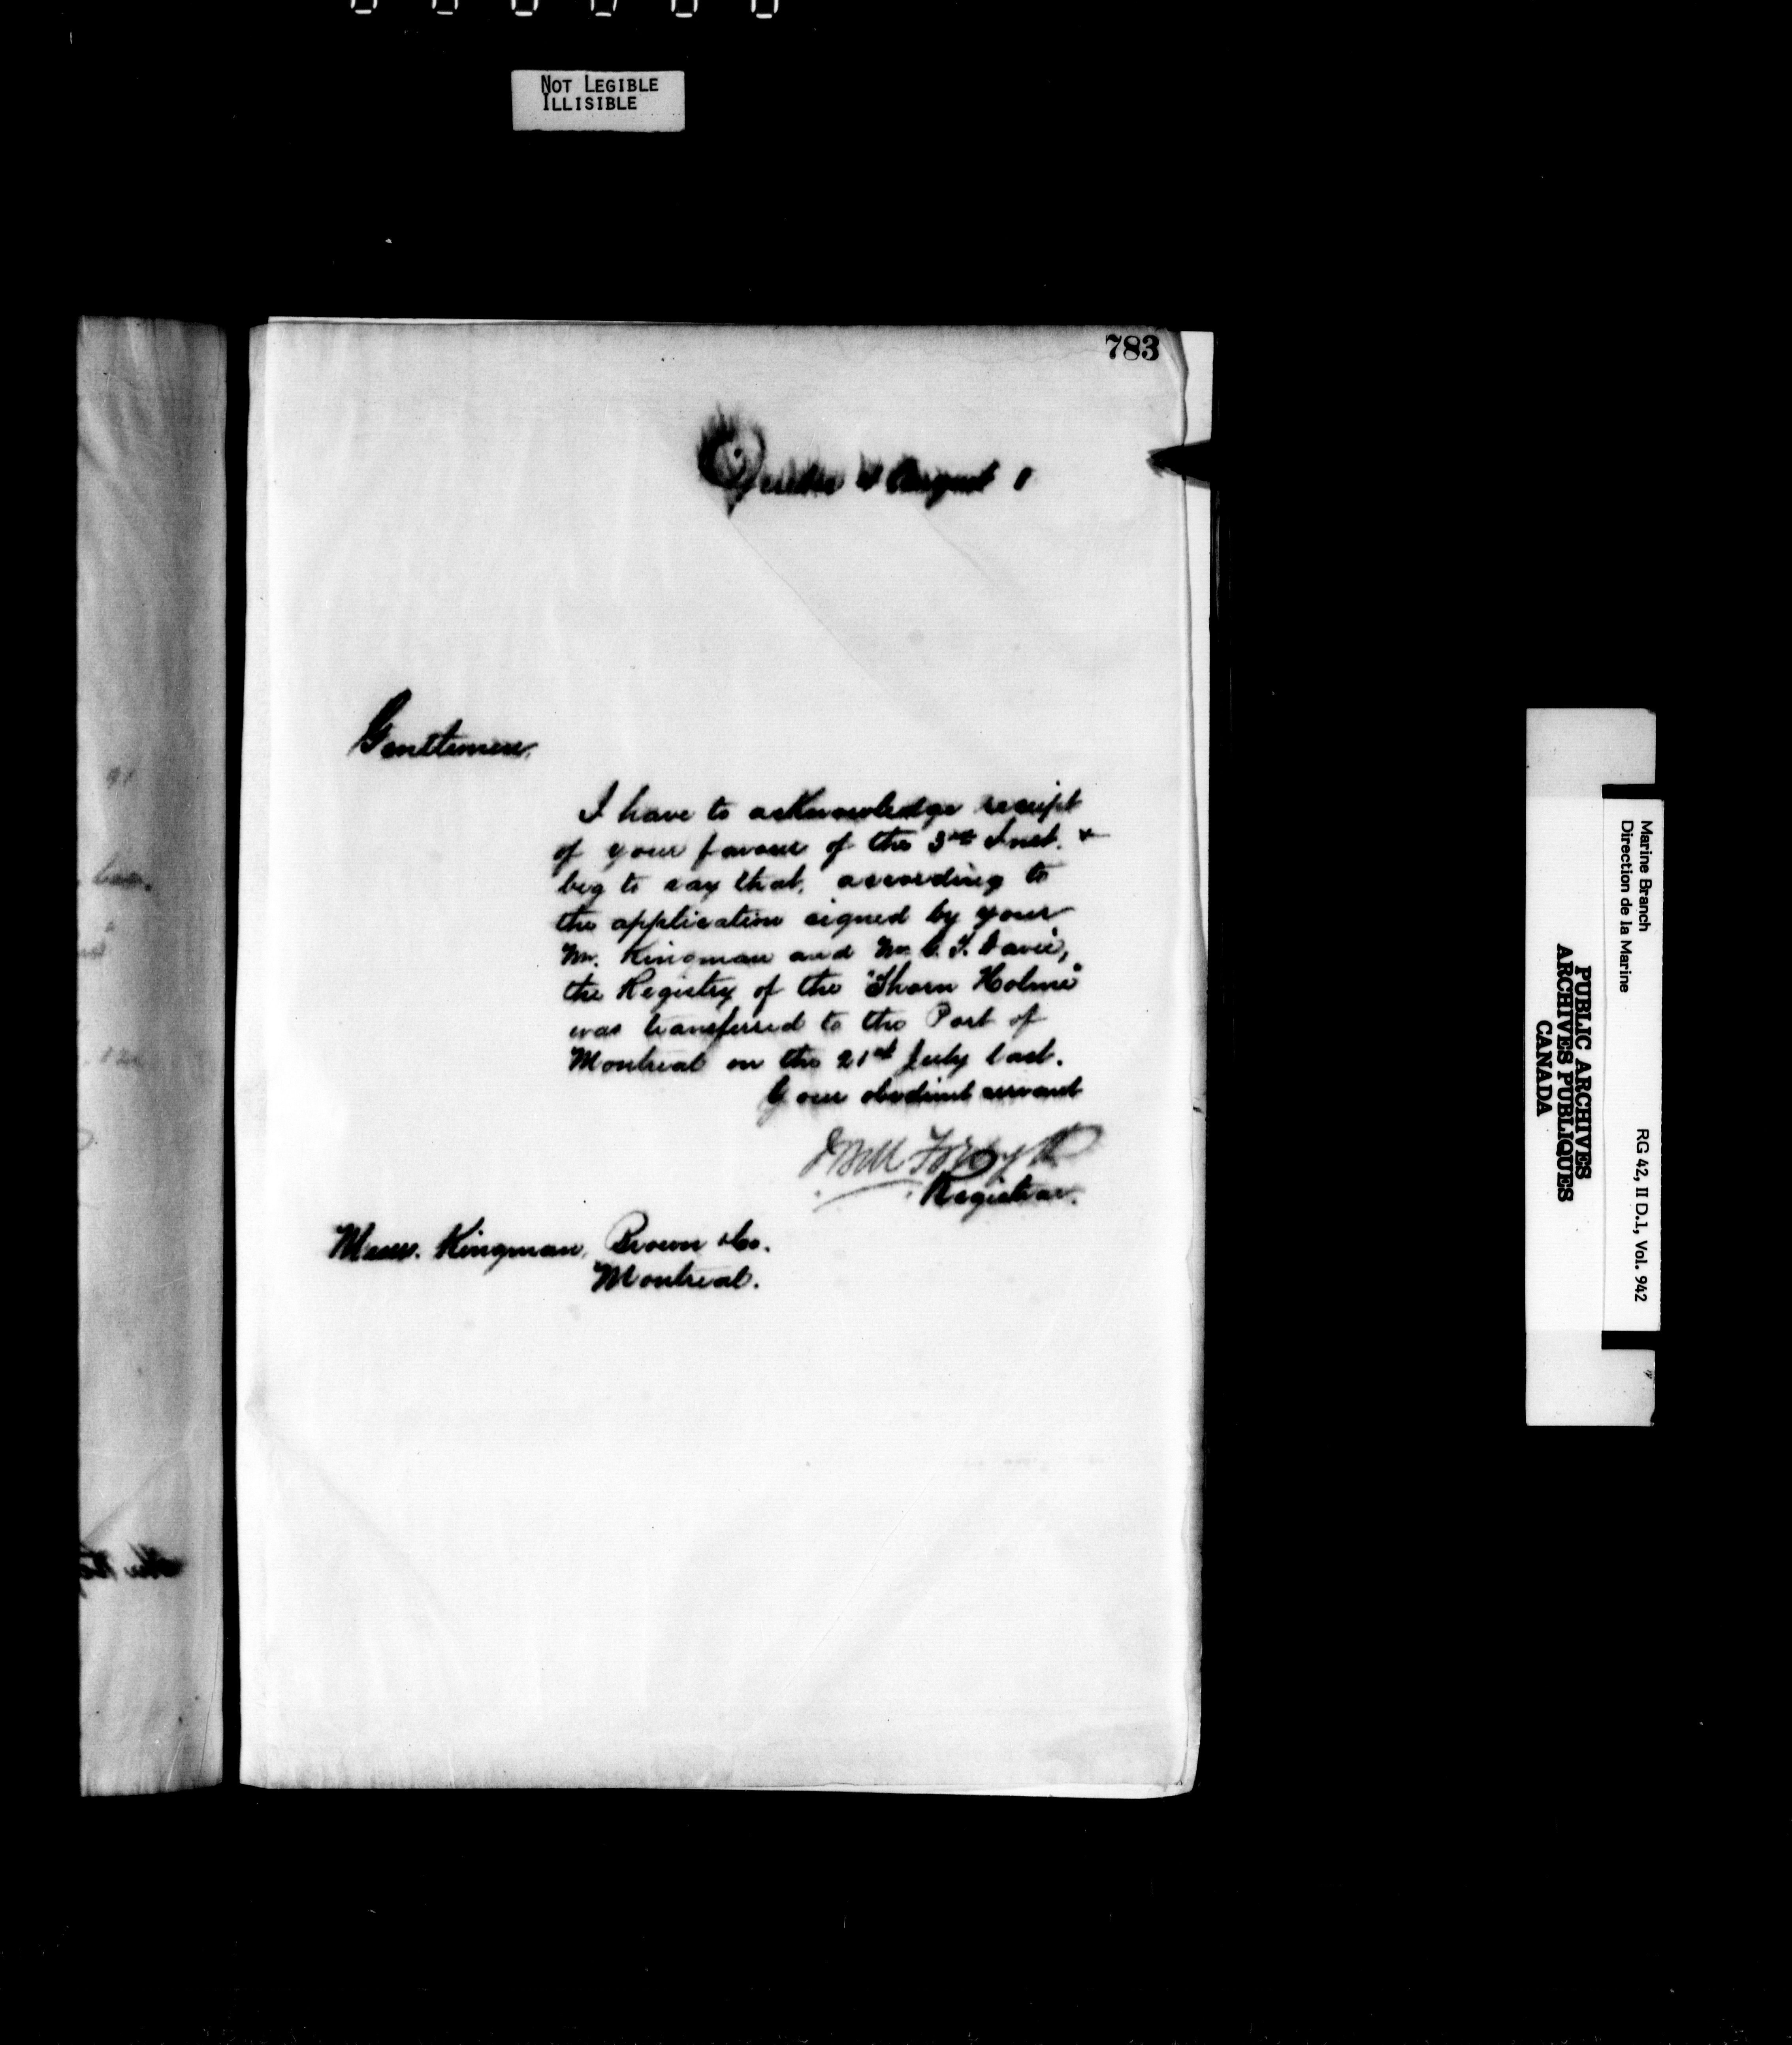 NOT LEGIBLE
ILLISIBLE
783
Quebec 4 August
Gentlemen,
I have to acknowledge receipt
of your favour of the 3rd Inst. &
beg to say that, according to
the application signed by your
Mr. Kingman and Mr. G. T. Davie,
the Registry of the "Thorn Holme"
was transferred to the Port of
Montreal on the 21st July last.
Your obedient servant
J Bell Forsyth
Registrar.
Messrs. Kingman, Brown & Co.
Montreal.
Marine Branch
Direction de la Marine
RG 42, II D.1, Vol. 942
PUBLIC ARCHIVES
ARCHIVES PUBLIQUES
CANADA